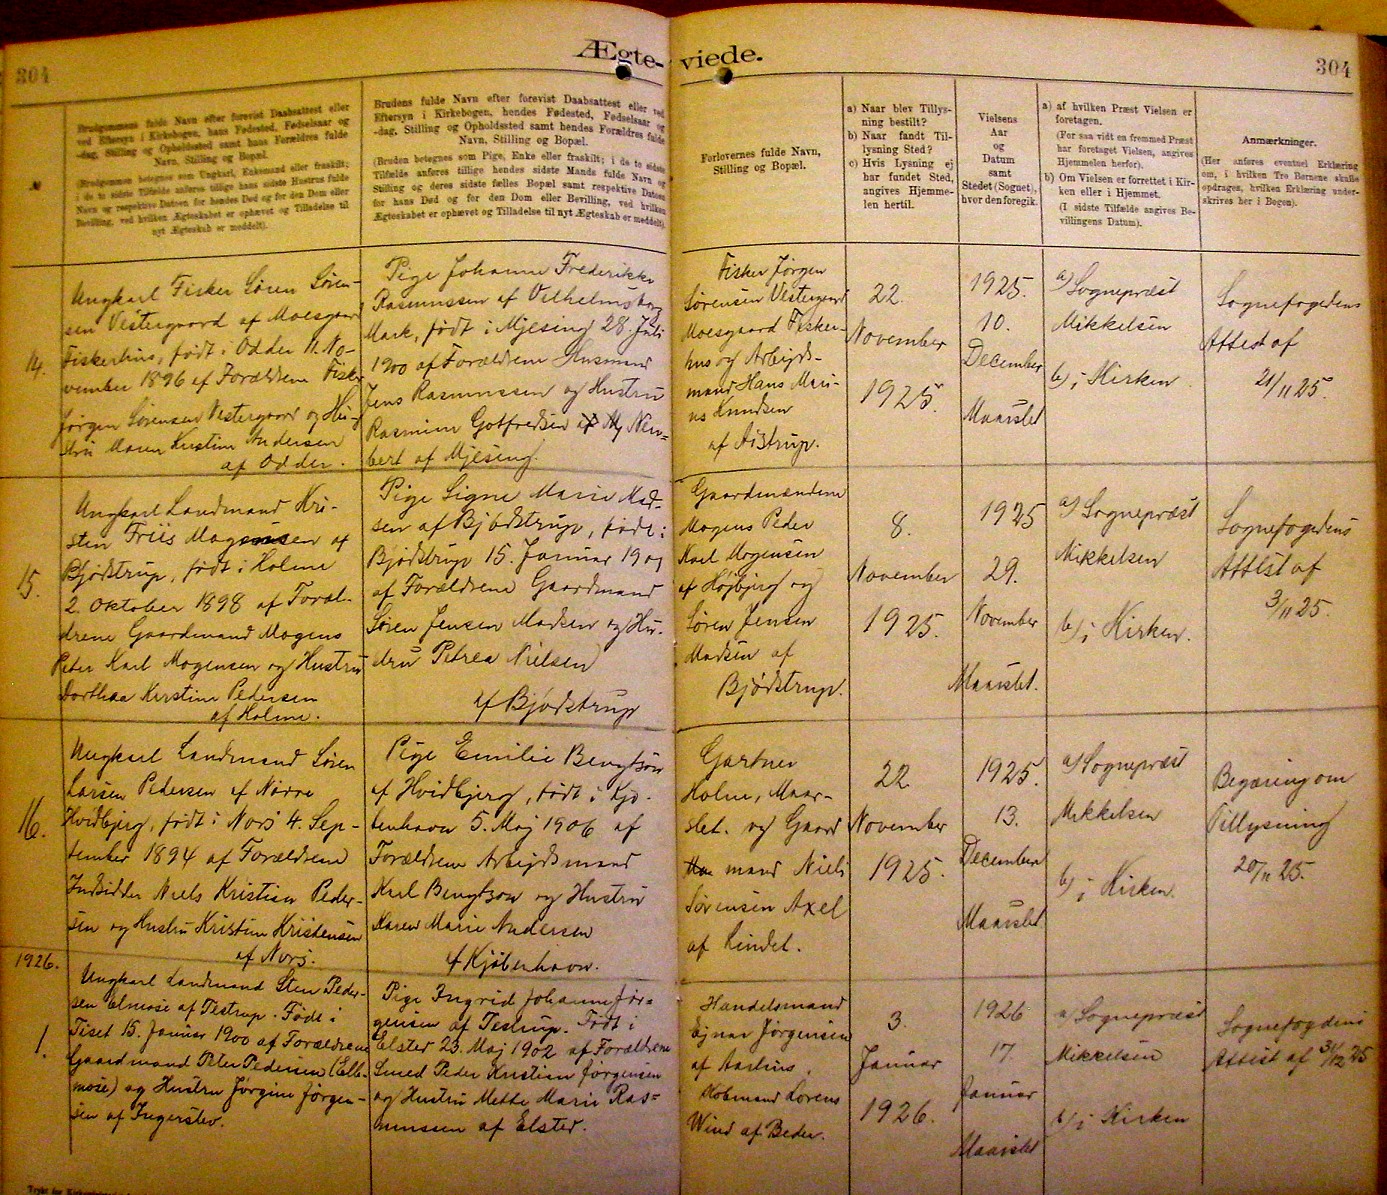 304
Ægte-
viede.
304
№
Brudgommens fulde Navn efter forevist Daabsattest eller
ved Eftersyn i Kirkebogen, hans Fødested, Fødselsaar og
-dag, Stilling og Opholdssted samt hans Forældres fulde
Navn, Stilling og Bopæl.
(Brudgommen betegnes som Ungkarl, Enkemand eller fraskilt;
i de to sidste Tilfælde anføres tillige hans sidste Hustrus fulde
Navn og respektive Datoen for hendes Død og for den Dom eller
Bevilling, ved hvilken Ægteskabet er ophævet og Tilladelse til
nyt Ægteskab er meddelt).
Brudens fulde Navn efter forevist Daabsattest eller ved
Eftersyn i Kirkebogen, hendes Fødested, Fødselsaar og
-dag, Stilling og Opholdssted samt hendes Forældres fulde
Navn, Stilling og Bopæl.
(Bruden betegnes som Pige, Enke eller fraskilt; i de to sidste
Tilfælde anføres tillige hendes sidste Mands fulde Navn og
Stilling og deres sidste fælles Bopæl samt respektive Datoen
for hans Død og for den Dom eller Bevilling, ved hvilken
Ægteskabet er ophævet og Tilladelse til nyt Ægteskab er meddelt).
Forlovernes fulde Navn,
Stilling og Bopæl.
a) Naar blev Tillys-
ning bestilt?
b) Naar fandt Til-
lysning Sted?
c) Hvis Lysning ej
har fundet Sted,
angives Hjemme-
len hertil.
Vielsens
Aar
og
Datum
samt
Stedet (Sognet),
hvor den foregik.
a) af hvilken Præst Vielsen er
foretagen.
(For saa vidt en fremmed Præst
har foretaget Vielsen, angives
Hjemmelen herfor).
b) Om Vielsen er forrettet i Kir-
ken eller i Hjemmet.
(I sidste Tilfælde angives Be-
villingens Datum).
Anmærkninger.
(Her anføres eventuel Erklæring
om, i hvilken Tro Børnene skulle
opdragen, hvilken Erklæring under-
skrives her i Bogen).
14.
Ungkarl Fisker Søren Søren-
sen Vestergaard af Moesgaard
Fiskerhus, født i Odder 11. No-
vember 1896 af Forældrene Fisker
Jørgen Sørensen Vestergaard og Hu-
stru Maren Kirstine Andersen
af Odder.
Pige Johanne Frederikke
Rasmussen af Vilhelmsborg
Mark, født i Mjesing 28. Juli
1900 af Forældrene Husmand
Jens Rasmussen og Hustru
Rasmine Gotfredsen
af Mjesing.
Fisker Jørgen
Sørensen Vestergaard
Moesgaard Fisker-
hus og Arbejds-
mand Hans Mari-
us Knudsen
af Aistrup.
22.
November
1925.
1925.
10.
December
Maarslet
a) Sognepræst
Mikkelsen
b) i Kirken.
Sognefogedens
Attest af
21/11 25.
15.
Ungkarl Landmand Kri-
sten Friis Mogensen af
Bjødstrup, født i Holme
2. Oktober 1898 af Foræl-
drene Gaardmand Mogens
Peter Karl Mogensen og Hustru
Dorthea Kirstine Pedersen
af Holme.
Pige Signe Marie Mad-
sen af Bjødstrup, født i
Bjødstrup 15. Januar 1901
af Forældrene Gaardmand
Søren Jensen Madsen og Hu-
stru Petrea Nielsen
af Bjødstrup
Gaardmændene
Mogens Peder
Karl Mogensen
af Højbjerg og
Søren Jensen
Madsen af
Bjødstrup.
8.
November
1925.
1925
29.
November
Maarslet.
a) Sognepræst
Mikkelsen
b) i Kirken.
Sognefogedens
Attest af
3/11 25.
16.
Ungkarl Landmand Søren
Larsen Pedersen af Nørre
Hvidbjerg, født i Nors 4. Sep-
tember 1894 af Forældrene
Indsidder Niels Kristian Peder-
sen og Hustru Kristine Kristensen
af Nors.
Pige Emilie Bengtson
af Hvidbjerg, født i Kjø-
benhavn 5. Maj 1906 af
Forældrene Arbejdsmand
Karl Bengtson og Hustru
Karen Marie Andersen
af Kjøbenhavn.
Gartner
Holm, Maar-
slet. og Gaard
mand Niels
Sørensen Axel
af Lindet.
22.
November
1925.
1925.
13.
December
Maarslet
a) Sognepræst
Mikkelsen
b) i Kirken.
Begæring om
Tillysning
20/11 25.
1926.
1.
Ungkarl Landmand Sten Peder-
sen Elmose af Testrup. Født i
Tiset 15. Januar 1900 af Forældrene
Gaardmand Peter Pedersen (Elle-
mose) og Hustru Jørgine Jørgen-
sen af Ingerslev.
Pige Ingrid Johanne Jør-
gensen af Testrup. Født i
Elsted 23. Maj 1902 af Forældrene
Smed Peder Kristian Jørgensen
og Hustru Mette Marie Ras-
mussen af Elsted.
Handelsmand
Ejnar Jørgensen
af Aarhus.
Købmand Lorens
Wind af Beder.
3.
Januar
1926.
1926
17.
Januar
Maarslet
a) Sognepræst
Mikkelsen
b) i Kirken
Sognefogdens
Attest af 31/12 25